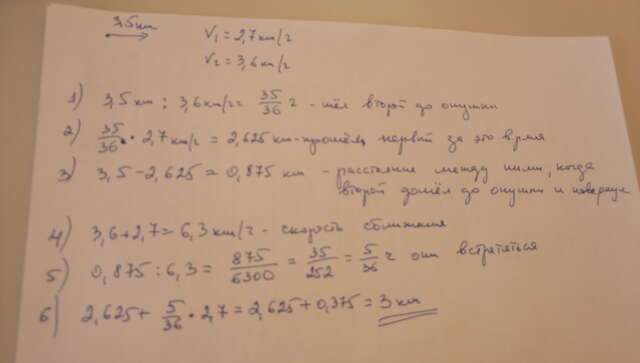 3,5 km
V₁ = 2,7 km/г
V₂ = 3,6 km/г
1) 3,5 km : 3,6 km/г = 35/36 г - шёл второй до опушки
2) 35/36 • 2,7 km/г = 2,625 km - прошёл первый за это время
3) 3,5 - 2,625 = 0,875 km - расстояние между ними, когда
второй дошёл до опушки и повернул
4) 3,6 + 2,7 = 6,3 km/г - скорость сближения
5) 0,875 : 6,3 = 875/6300 = 35/252 = 5/36 г они встретяться
6) 2,625 + 5/36 • 2,7 = 2,625 + 0,375 = 3 km